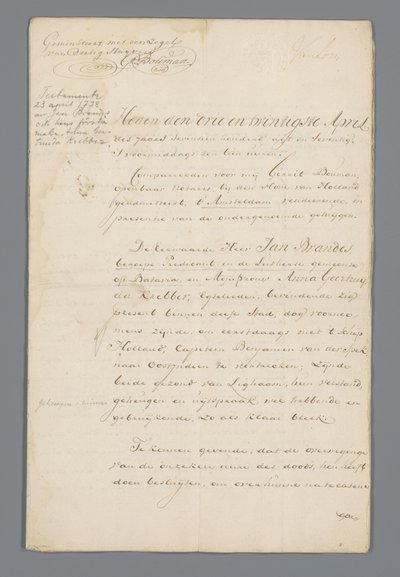 Gemunieert met een Zegel
van dertig Stuyvers
G: Bouman
Testament
23 april 1778
av Jan Brandes
och hans
maka, Anna Geertruida Krebber.
Heden den drie en twintigste April
des jaars seventien hondert agt en Seventig
's voormiddags ten tien uuren.
Compareerden voor mij Gerrit Bouman,
openbaar Notaris, bij den Hove van Holland
geadmitteert, t' Amsteldam residerende, in
presentie van de ondergenoemde getuygen.
De Eerwaarde Heer Jan Brandes
beroepe Predicant en de Luthersche gemeente
op Batavia, en Mejuffrouw Anna Geertruy
da Krebber, Egtelieden, bevindende zig
present binnen deese Stad, dog voornee
mens zijnde, om eerstdaags met 't Schip
Holland, Capitein Benjamin van der
naar Oostjndien te vertrecken; Zijnde
beide gezond van Lighaam, hun verstand,
geheugen en uijtspraak wel hebbende en
gebruijkende, zo als klaar bleek.
Te kennen gevende, dat de overweginge
van de onzekere uure des doods, hun heeft
doen besluyten, om over hunne natelatene
goe